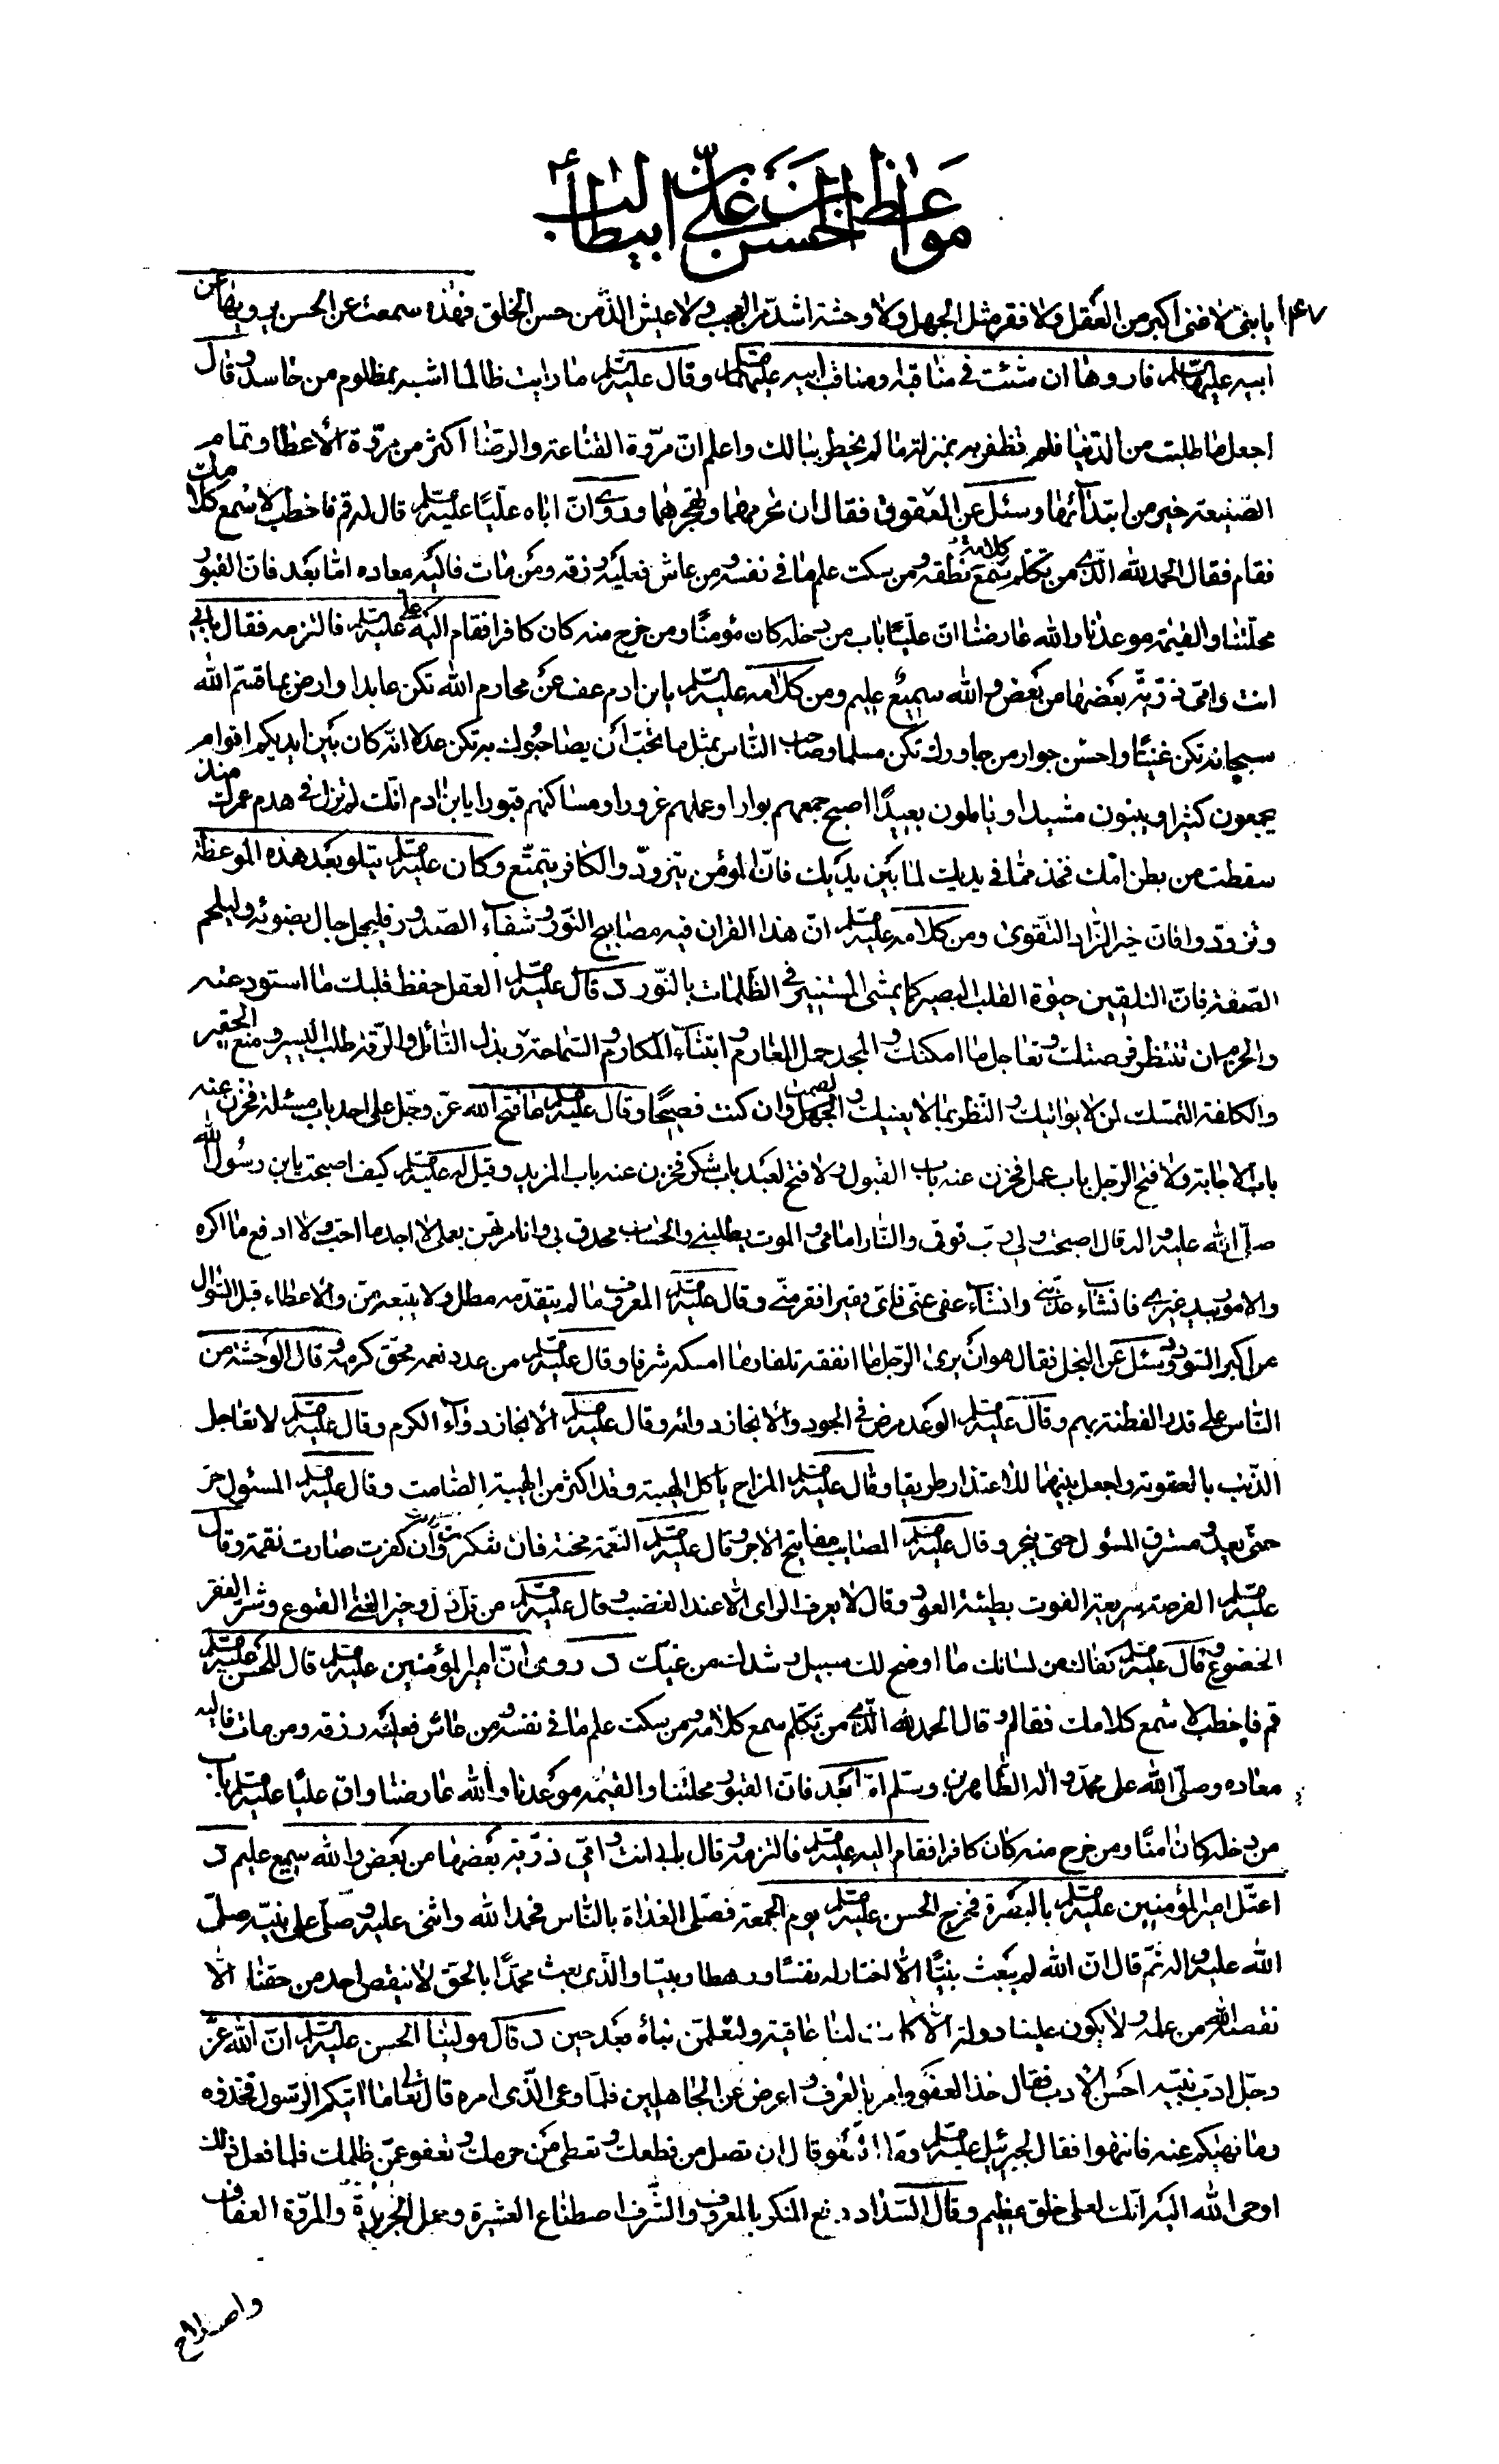 مواعظ الحسن بن علي بن ابيطالب ع
١٤٧
يا بنى لا غنى اكبر من العقل ولا فقر مثل الجهل ولا وحشة اشد من العجب ولا عيش الذ من حسن الخلق فهذه سمعت عن الحسن يرويها عن
ابيه عليهما السلم فاروها ان شئت فى مناقبه ومناقب ابيه عليهما السلم وقال عليه السلم ما رايت ظالما اشبه بمظلوم من حاسد وقال
اجعل ما طلبت من الدنيا فلم تظفر به بمنزلة ما لم يخطر ببالك واعلم ان مروة القناعة والرضا اكثر من مروة الاعطا وتمام
الصنيعة خير من ابتدائها وسئل عن العقوق فقال ان تحرمهما وتهجرهما وروى ان اباه عليا عليه السلم قال له قم فاخطب لاسمع كلامك
فقام فقال الحمد لله الذى من تكلم سمع كلامه نطقه ومن سكت علم ما فى نفسه ومن عاش فعليه رزقه ومن مات فاليه معاده اما بعد فان القبور
محلتنا والقيمة موعدنا والله عارضنا ان عليا باب من دخله كان مؤمنا ومن خرج منه كان كافرا فقام اليه على عليه السلم فالتزمه فقال بابى
انت وامى ذرية بعضها من بعض والله سميع عليم ومن كلامه عليه السلم يابن ادم عف عن محارم الله تكن عابدا وارض بما قسم الله
سبحانه تكن غنيا واحسن جوار من جاورك تكن مسلما وصاحب الناس بمثل ما تحب ان يصاحبوك به تكن عدلا انه كان بين ايديكم اقوام
يجمعون كثيرا ويبنون مشيدا وياملون بعيدا اصبح جمعهم بوارا وعملهم غرورا ومساكنهم قبورا يابن ادم انك لم تزل فى هدم عمرك منذ
سقطت من بطن امك فخذ مما فى يديك لما بين يديك فان المؤمن يتزود والكافر يتمتع وكان عليه السلم يتلو بعد هذه الموعظة
وتزودوا فان خير الزاد التقوى ومن كلامه عليه السلم ان هذا القران فيه مصابيح النور وشفاء الصدور فليجل جال بضوئه وليلجم
الصفة فان التلقين حيوة القلب البصير كما يمشى المستنير فى الظلمات بالنور د قال عليه السلم العقل حفظ قلبك ما استودعته
والحزم ان تنتظر فرصتك وتعاجل ما امكنك والمجد حمل المغارم وابتناء المكارم والسماحة وبذل النائل والرقة طلب اليسير ومنع الحقير
والكلفة التمسك لمن لا يواتيك والنظر بما لا يعنيك والجهل وان كنت فصيحا وقال عليه السلم ما فتح الله عز وجل على احد باب مسئلة فخزن عنه
باب الاجابة ولا فتح الرجل باب عمل فخزن عنه باب القبول ولا فتح لعبد باب شكر فخزن عنه باب المزيد وقيل له عليه السلم كيف اصبحت يابن رسول الله
صلى الله عليه واله قال اصبحت ولى رب فوقى والنار امامى والموت يطلبنى والحساب محدق بى وانا مرتهن بعملى لا اجد ما احب ولا ادفع ما اكره
والامور بيد غيرى فانشاء عذبنى وانشاء عفى عنى فاى فقير افقر منى وقال عليه السلم المعروف ما لم يتقدمه مطل ولا يتبعه من والاعطاء قبل السوال
من اكبر السودد وسئل عن البخل فقال هو ان يرى الرجل ما انفقه تلفا وما امسكه شرفا وقال عليه السلم من عدد نعمه محق كرمه وقال الوحشة من
الناس على قدر الفطنة بهم وقال عليه السلم الوعد مرض فى الجود والانجاز دوائه وقال عليه السلم الانجاز دواء الكرم وقال عليه السلم لا تعاجل
الذنب بالعقوبة واجعل بينهما للاعتذار طريقا وقال عليه السلم المزاح ياكل الهيبة وقد اكثر من الهيبة الصامت وقال عليه السلم المسئول حر
حتى يعد ومسترق المسئول حتى ينجز وقال عليه السلم المصايب مفاتيح الاجر وقال عليه السلم النعمة محنة فان شكرت وان كفرت صارت نقمة وقال
عليه السلم الفرصة سريعة الفوت بطيئة العود وقال لا يعرف الراى الا عند الغضب وقال عليه السلم من قل ذل وخير الغنى القنوع وشر الفقر
الخضوع وقال عليه السلم كفاك من لسانك ما اوضح لك سبيل رشدك من غيك د روى ان امير المؤمنين عليه السلم قال للحسن عليه السلم
قم فاخطب لاسمع كلامك فقام وقال الحمد لله الذى من تكلم سمع كلامه ومن سكت علم ما فى نفسه ومن عاش فعليه رزقه ومن مات فاليه
معاده وصلى الله على محمد واله الطاهرين وسلم اما بعد فان القبور محلتنا والقيمة موعدنا والله عارضنا وان عليا عليه السلم باب
من دخله كان امنا ومن خرج منه كان كافرا فقام اليه عليه السلم فالتزمه وقال بابى انت وامى ذرية بعضها من بعض والله سميع عليم د
اعتل امير المؤمنين عليه السلم بالبصرة فخرج الحسن عليه السلم يوم الجمعة فصلى الغداة بالناس فحمد الله واثنى عليه وصلى على نبيه صلى
الله عليه واله ثم قال ان الله لم يبعث نبيا الا اختار له نفسا ورهطا وبيتا والذى بعث محمدا بالحق لا ينقص احد من حقنا الا
نقصه الله من عمله ولا يكون علينا دولة الا كانت لنا عاقبة ولتعلمن نباه بعد حين د قال مولينا الحسن عليه السلم ان الله عز
وجل ادب نبيه احسن الادب فقال خذ العفو وامر بالعرف واعرض عن الجاهلين فلما وعى الذى امره قال تعالى ما اتيكم الرسول فخذوه
وما نهيكم عنه فانتهوا فقال لجبرئيل عليه السلم وما العفو قال ان تصل من قطعك وتعطى من حرمك وتعفو عمن ظلمك فلما فعل ذلك
اوحى الله اليه انك لعلى خلق عظيم وقال السداد دفع المنكر بالمعروف والشرف اصطناع العشيرة وحمل الجريرة والمروة العفاف
واصلاح